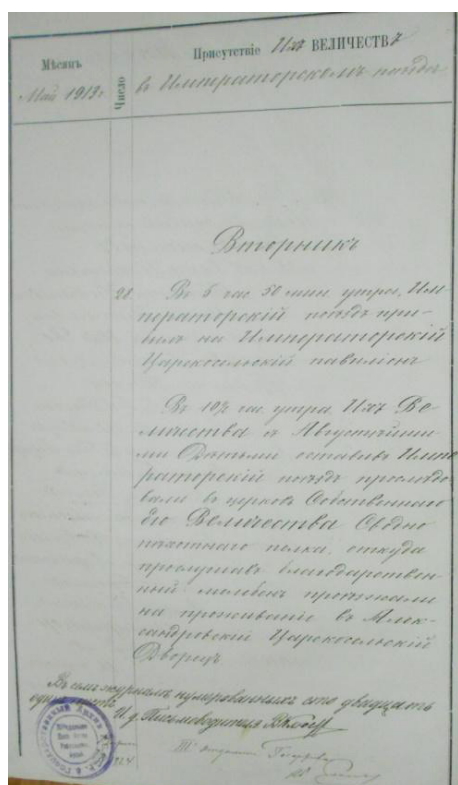 Мѣсяцъ
Май 1913 г.
Число
Присутствіе Ихъ ВЕЛИЧЕСТВЪ
в Императорскомъ поѣздѣ
Вторникъ
28. Въ 6 час. 50 мин. утра, Им
ператорскій поѣздъ при-
былъ на Императорскій
Царскосельскій павиліонъ
Въ 10½ час. утра Ихъ Ве-
личества с Августѣйши-
ми Дѣтьми оставивъ Импе
раторскій поѣздъ прослѣдо
вали въ церковь Собственнаго
Его Величества Сводно
пѣхотнаго полка, откуда
прослушавъ благодарствен-
ный молебенъ проѣхали
на проживаніе въ Алек-
сандровскій Царскосельскій
Дворецъ
Въ семъ журналѣ нумерованныхъ сто двадцать
И. д. Письмоводителя